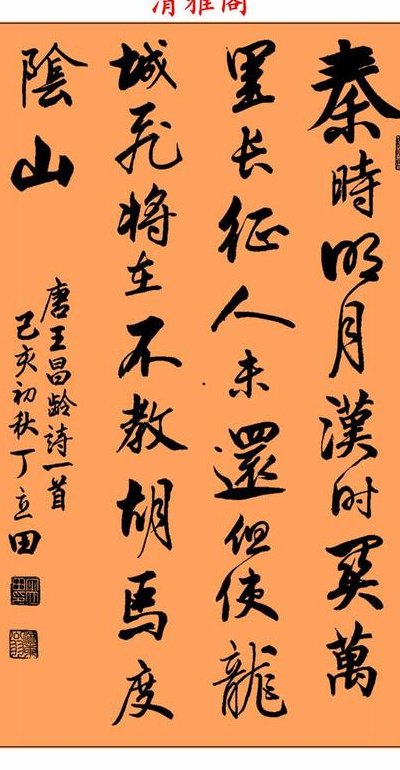 清雅阁
秦時明月漢时関萬
里长征人未還但使龍
城飛将在不教胡馬度
陰山
唐王昌龄詩一首
己亥初秋丁立田